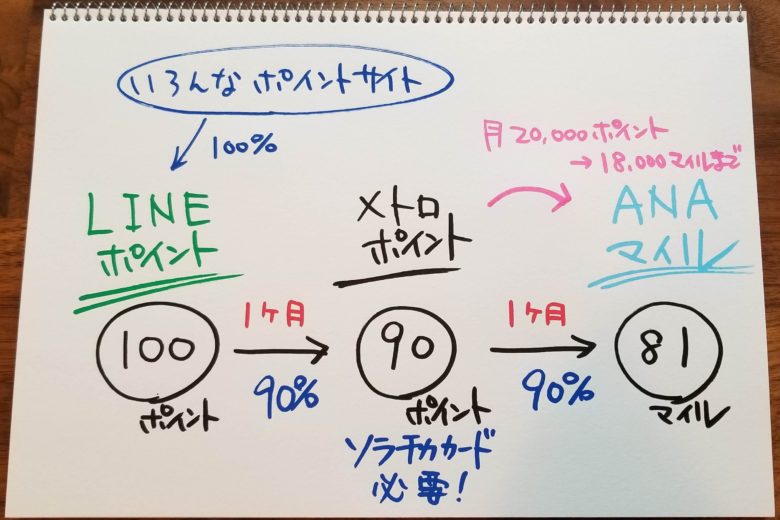 いろんなポイントサイト
100%
月20,000ポイント
→18,000マイルまで
LINE
ポイント
メトロ
ポイント
ANA
マイル
1ヶ月
1ヶ月
100
90
81
90%
90%
ポイント
ポイント
マイル
ソラチカカード
必要!